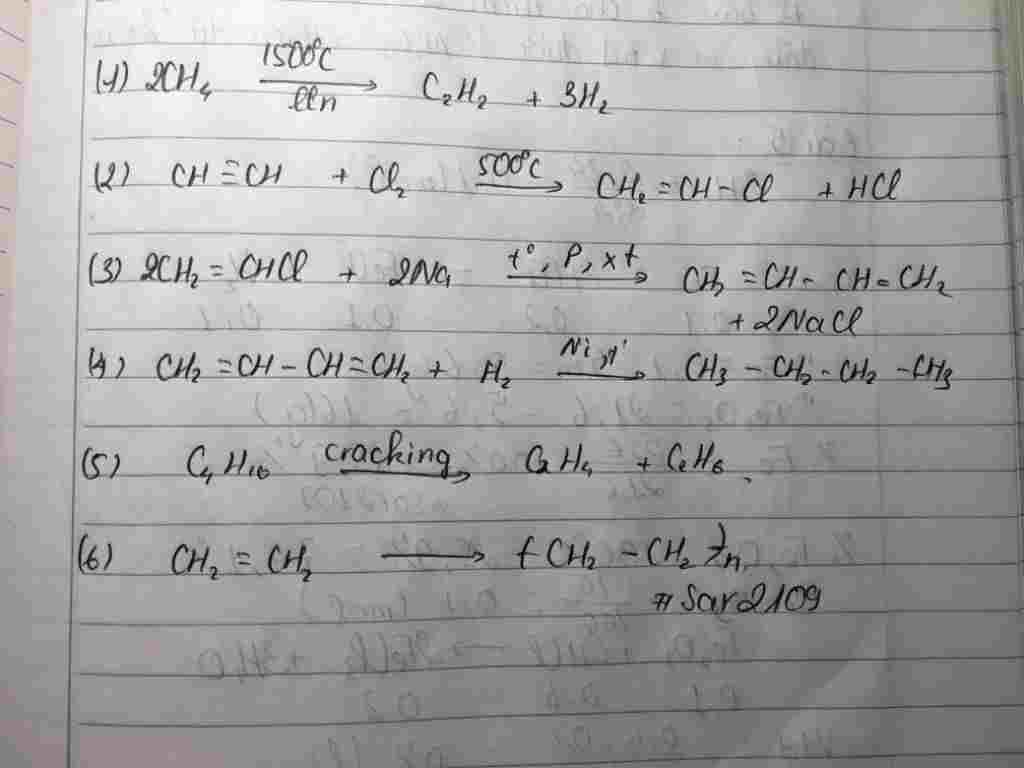 (1) 2CH₄ —1500°C/lln→ C₂H₂ + 3H₂
(2) CH≡CH + Cl₂ —500°C→ CH₂=CH-Cl + HCl
(3) 2CH₂=CHCl + 2Na —t°, P, xt→ CH₂=CH-CH=CH₂
+ 2NaCl
(4) CH₂=CH-CH=CH₂ + H₂ —Ni, t°→ CH₃-CH₂-CH₂-CH₃
(5) C₄H₁₀ —cracking→ C₂H₄ + C₂H₆
(6) CH₂=CH₂ → (CH₂-CH₂)n
#Sar2109